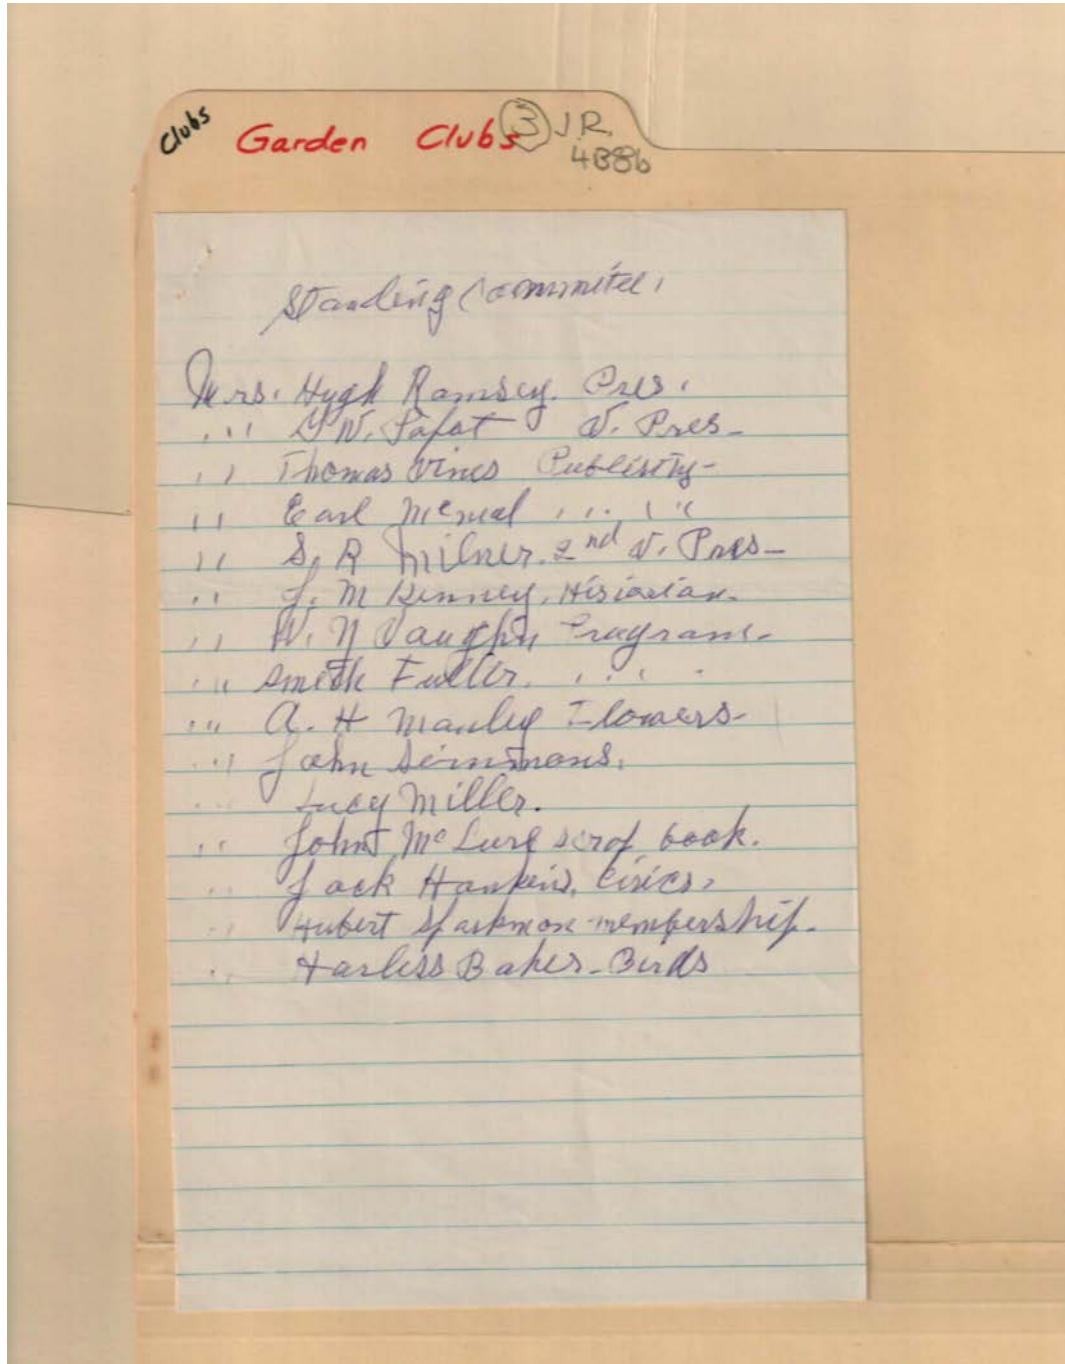 Clubs
Garden Clubs 3 J.R.
4B8b
Standing Committee,
Mrs. Hugh Ramsey. Pres.
,, " V. Pres-
" Thomas Vines Publisity-
" Earl McNeal " "
" S. R Milner. 2nd V. Pres-
" J. M Kinney, Hisiorian-
" W. N Vaughn Programs-
" Smith Fuller. " "
" A. H Manley Flowers-
" John Simmons.
" Lucy Miller.
" John McLure scrap book.
" Jack Hankins, Civics,
" Hubert Sparkman-membership-
" Harliss Baker-Birds